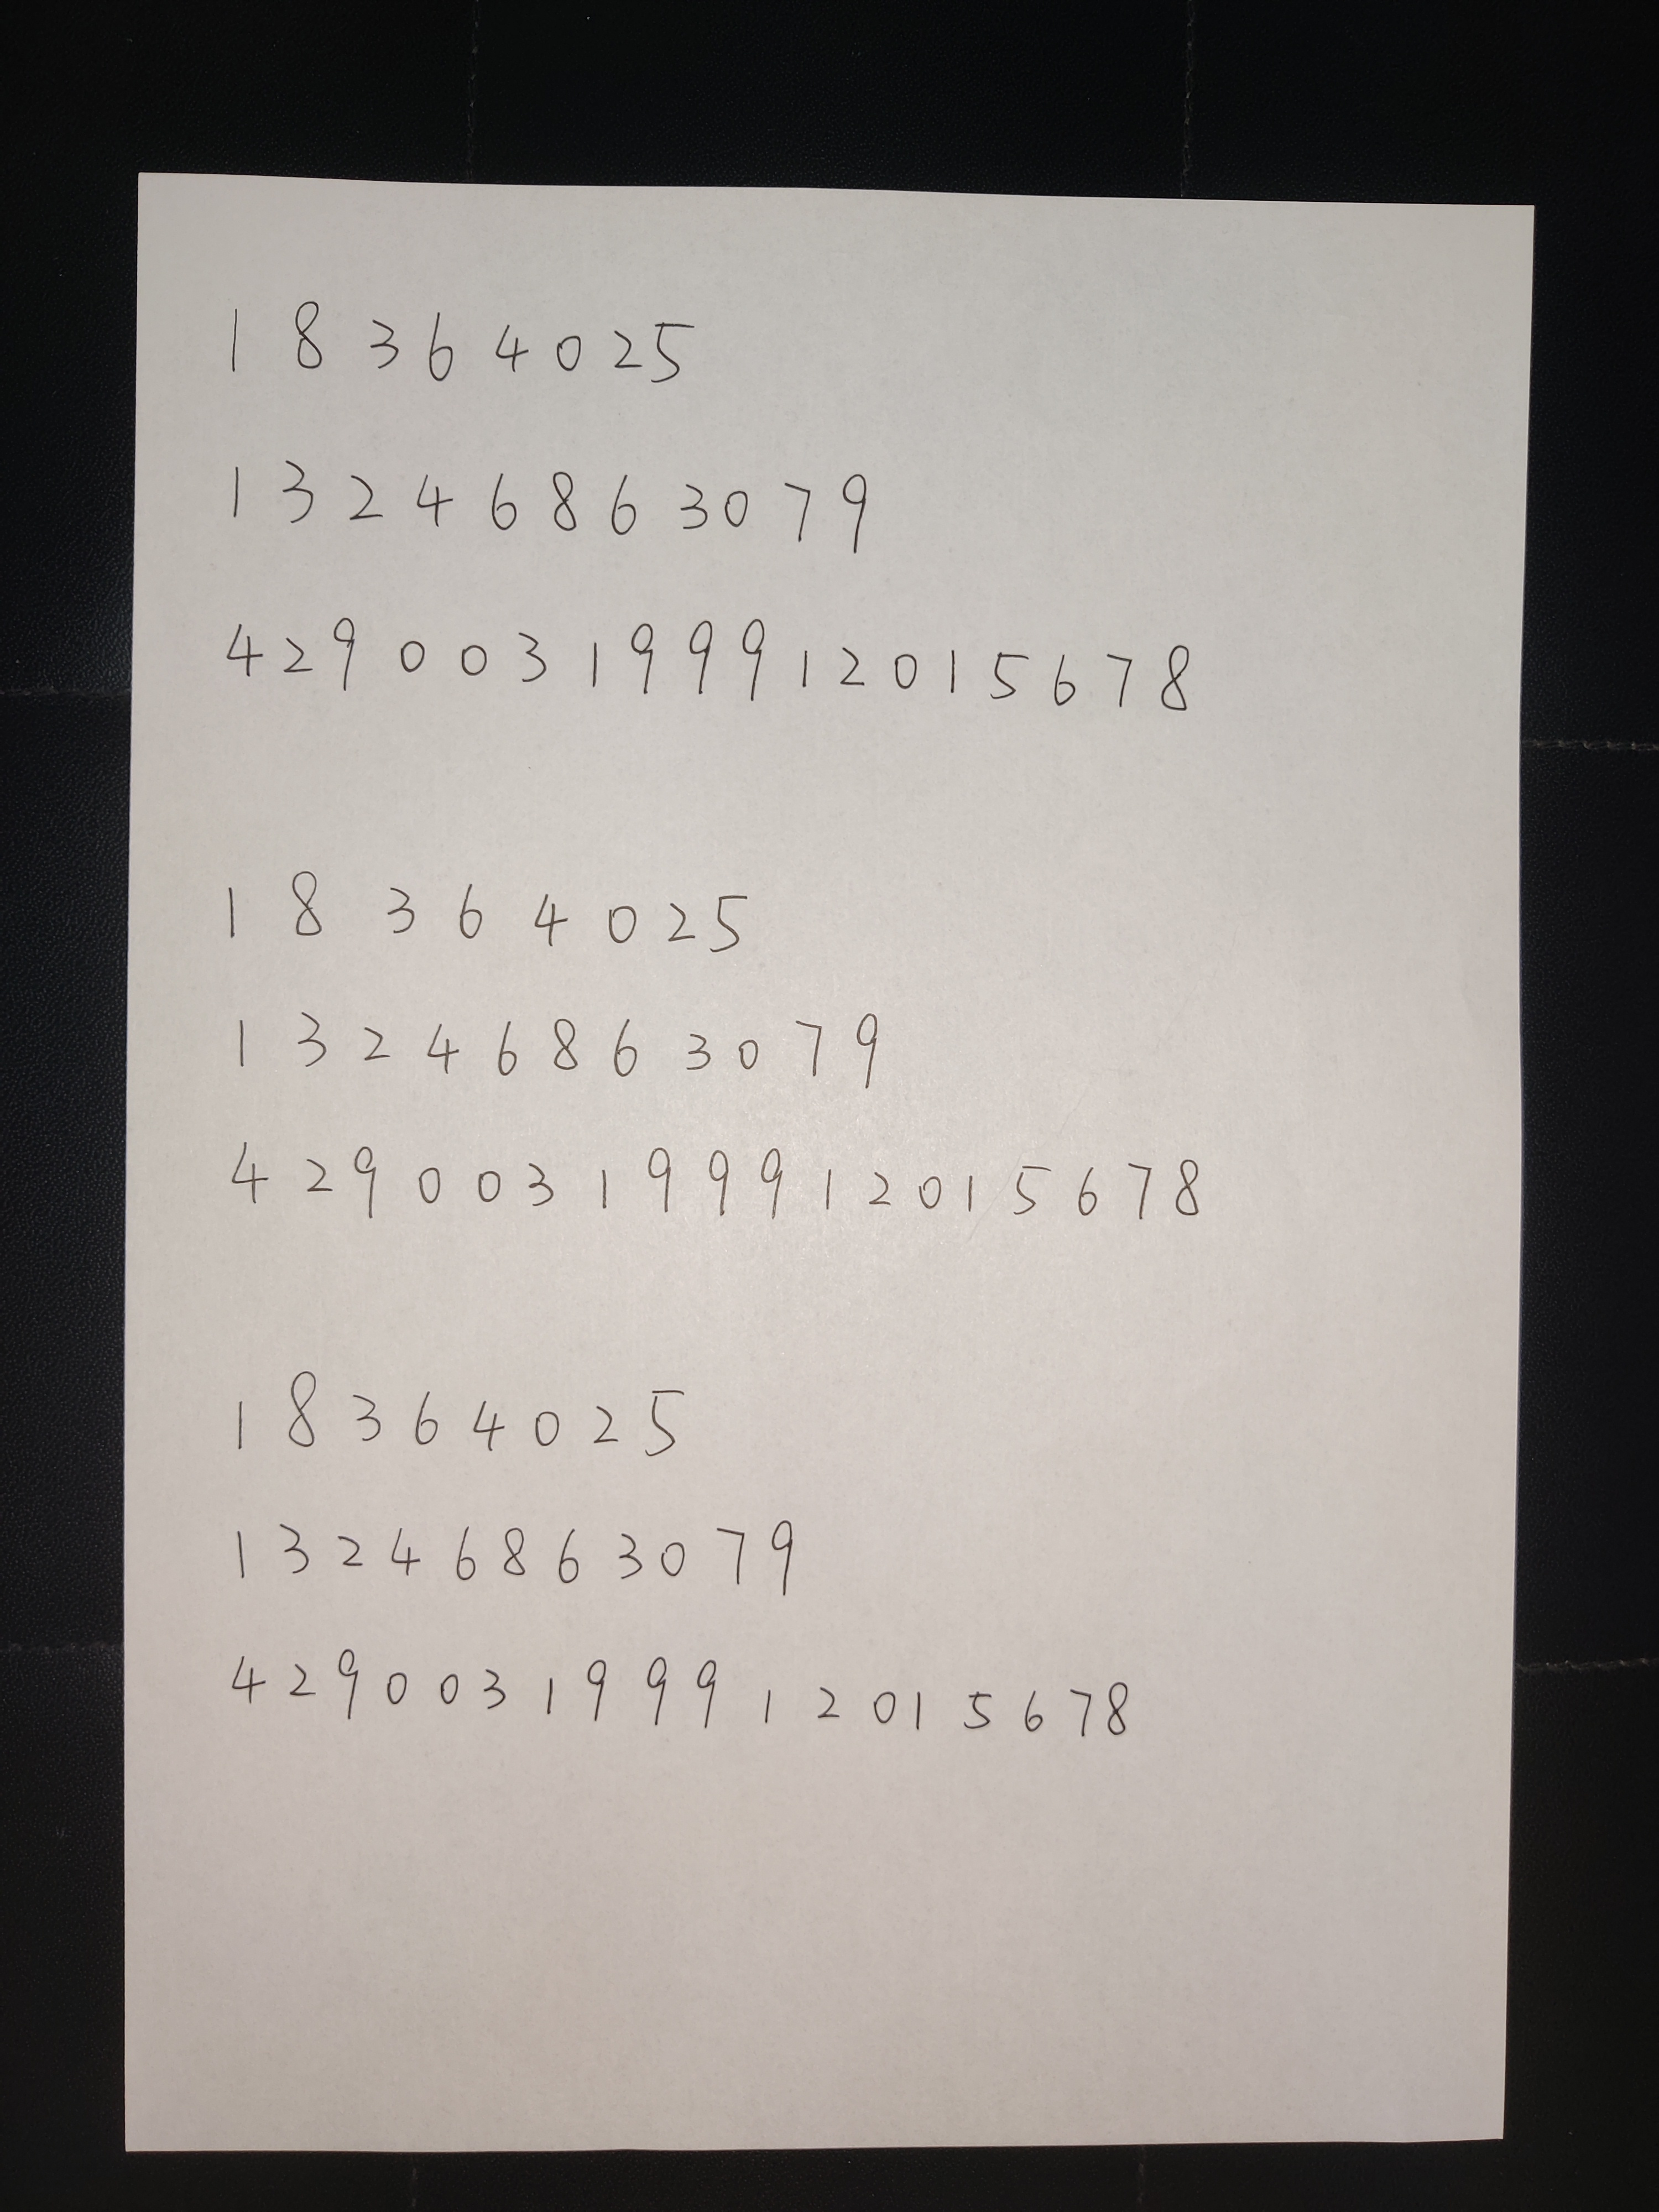 1 8 3 6 4 0 2 5
1 3 2 4 6 8 6 3 0 7 9
4 2 9 0 0 3 1 9 9 9 1 2 0 1 5 6 7 8
1 8 3 6 4 0 2 5
1 3 2 4 6 8 6 3 0 7 9
4 2 9 0 0 3 1 9 9 9 1 2 0 1 5 6 7 8
1 8 3 6 4 0 2 5
1 3 2 4 6 8 6 3 0 7 9
4 2 9 0 0 3 1 9 9 9 1 2 0 1 5 6 7 8